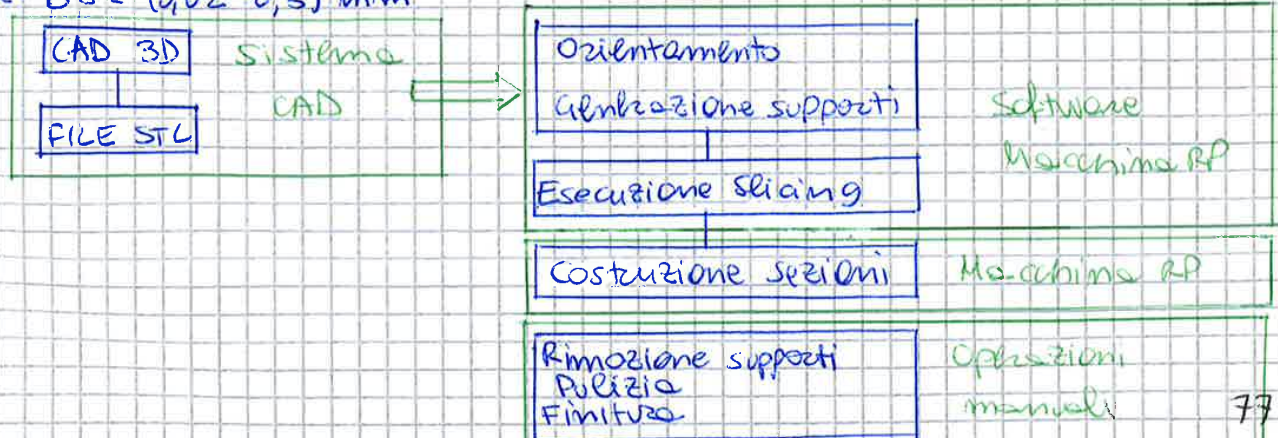 (0,02 0,3) mm
CAD 3D
FILE STL
Sistema
CAD
Orientamento
Generazione supporti
Esecuzione slicing
Software
Macchina RP
Costruzione sezioni
Macchina RP
Rimozione supporti
Pulizia
Finitura
Operazioni
manuali
77